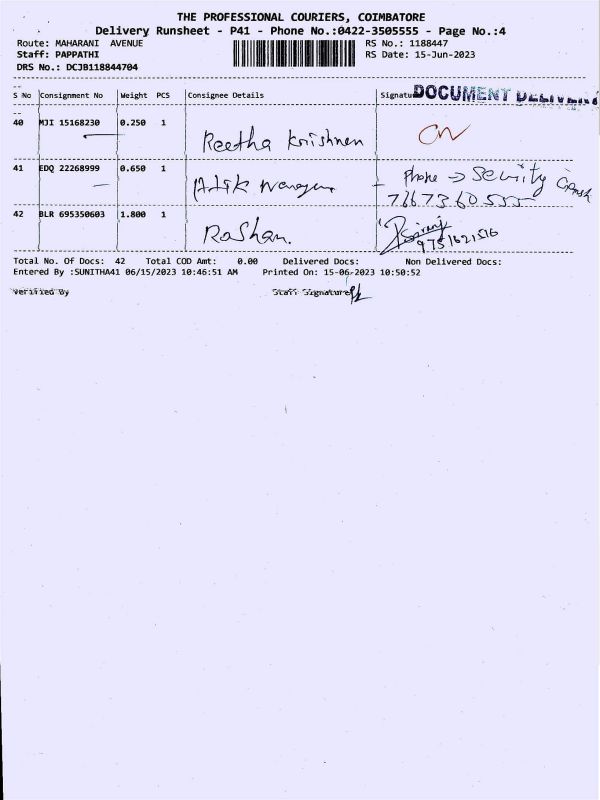 THE PROFESSIONAL COURIERS, COIMBATORE
Delivery Runsheet - P41 - Phone No.:0422-3505555 - Page No.:4
Route: MAHARANI AVENUE RS No.: 1188447
Staff: PAPPATHI RS Date: 15-Jun-2023
DRS No.: DCJB118844704
S No Consignment No Weight PCS Consignee Details Signatu DOCUMENT DELIVERY
40 MJI 15168230 0.250 1 Reetha Krishnen
41 EDQ 22268999 0.650 1 Phone → Security
7667360555
42 BLR 695350603 1.800 1 Roshan.
9751621516
Total No. Of Docs: 42 Total COD Amt: 0.00 Delivered Docs: Non Delivered Docs:
Entered By :SUNITHA41 06/15/2023 10:46:51 AM Printed On: 15-06-2023 10:50:52
Verified By Staff Signature